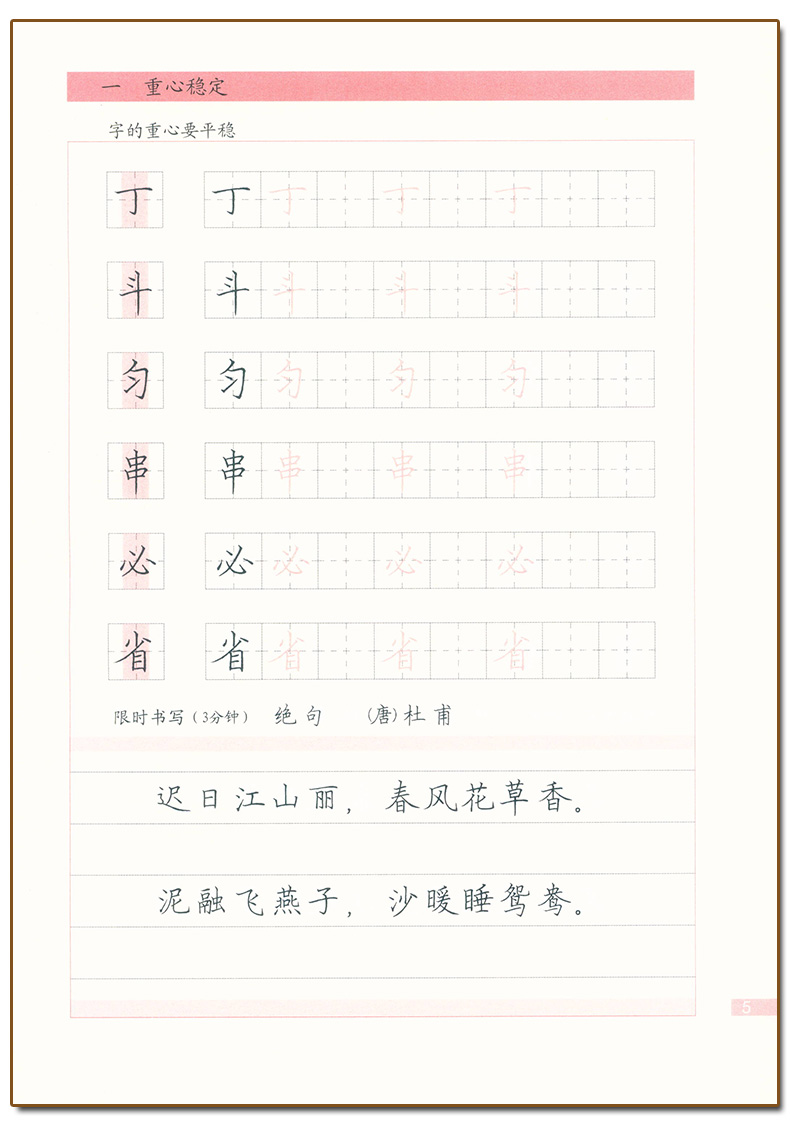 一 重心稳定
字的重心要平稳
丁 丁 丁 丁 丁
斗 斗 斗 斗 斗
匀 匀 匀 匀 匀
串 串 串 串 串
必 必 必 必 必
省 省 省 省 省
限时书写（3分钟） 绝句 （唐）杜甫
迟日江山丽，春风花草香。
泥融飞燕子，沙暖睡鸳鸯。
5